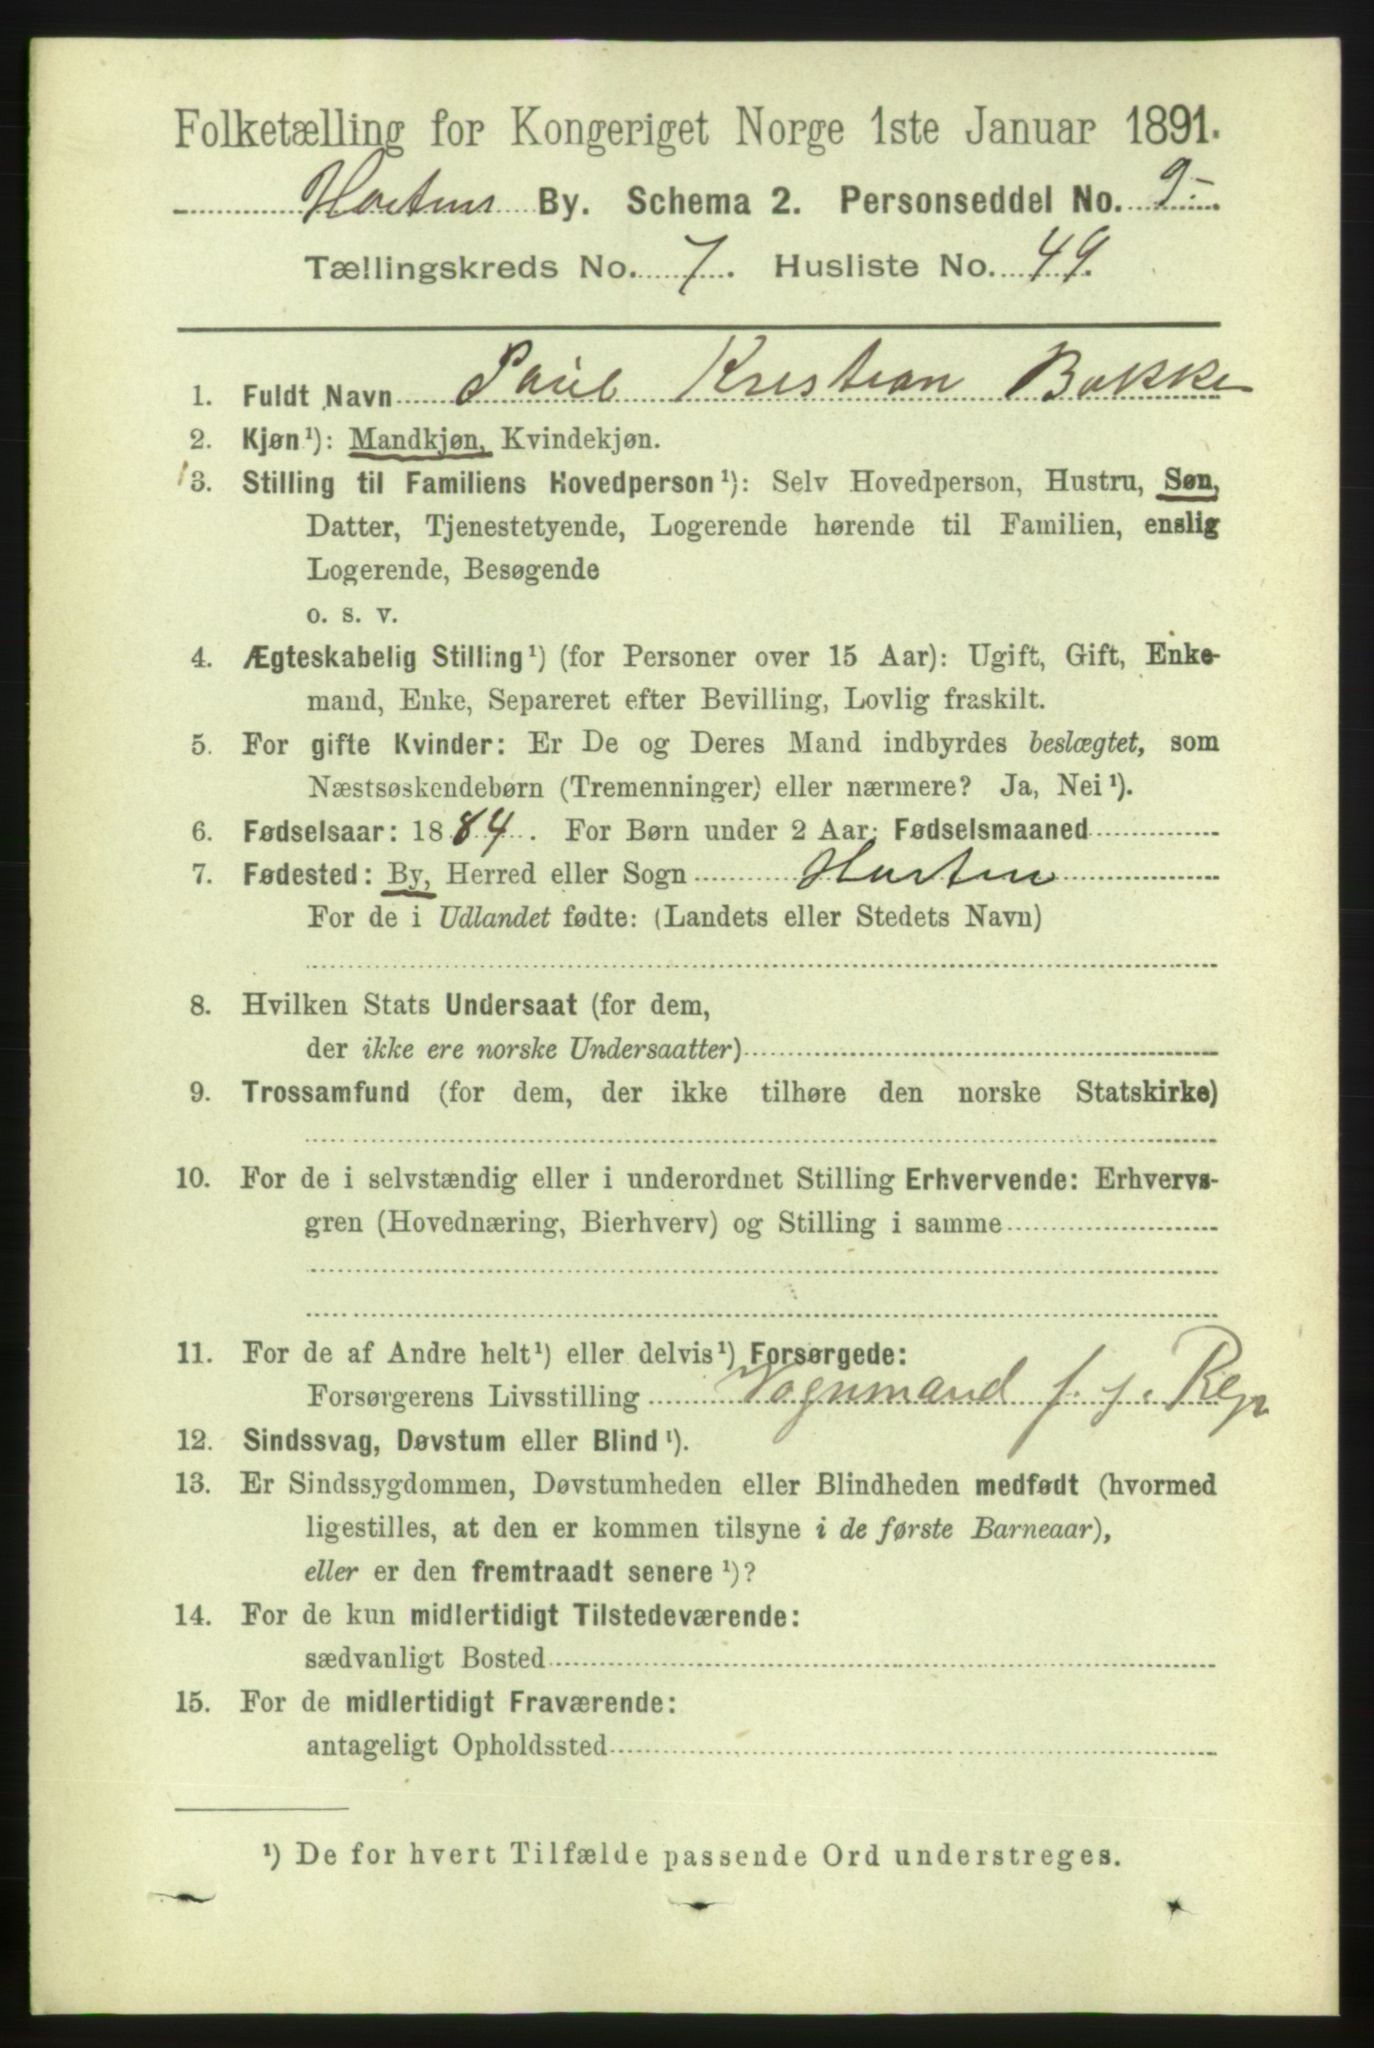 Folketælling for Kongeriget Norge 1ste Januar 1891.
Hortens By. Schema 2. Personseddel No. 9-
Tællingskreds No. 7. Husliste No. 49.
1. Fuldt Navn Paul Kristian Bakke
2. Kjøn¹): Mandkjøn, Kvindekjøn.
3. Stilling til Familiens Hovedperson¹): Selv Hovedperson, Hustru, Søn,
Datter, Tjenestetyende, Logerende hørende til Familien, enslig
Logerende, Besøgende
o. s. v.
4. Ægteskabelig Stilling¹) (for Personer over 15 Aar): Ugift, Gift, Enke-
mand, Enke, Separeret efter Bevilling, Lovlig fraskilt.
5. For gifte Kvinder: Er De og Deres Mand indbyrdes beslægtet, som
Næstsøskendebørn (Tremenninger) eller nærmere? Ja, Nei¹).
6. Fødselsaar: 1884. For Børn under 2 Aar: Fødselsmaaned
7. Fødested: By, Herred eller Sogn Horten
For de i Udlandet fødte: (Landets eller Stedets Navn)
8. Hvilken Stats Undersaat (for dem,
der ikke ere norske Undersaatter)
9. Trossamfund (for dem, der ikke tilhøre den norske Statskirke)
10. For de i selvstændig eller i underordnet Stilling Erhvervende: Erhvervs-
gren (Hovednæring, Bierhverv) og Stilling i samme
11. For de af Andre helt¹) eller delvis¹) Forsørgede:
Forsørgerens Livsstilling Vognmand f. j. Regn
12. Sindssvag, Døvstum eller Blind¹).
13. Er Sindssygdommen, Døvstumheden eller Blindheden medfødt (hvormed
ligestilles, at den er kommen tilsyne i de første Barneaar),
eller er den fremtraadt senere¹)?
14. For de kun midlertidigt Tilstedeværende:
sædvanligt Bosted
15. For de midlertidigt Fraværende:
antageligt Opholdssted
¹) De for hvert Tilfælde passende Ord understreges.